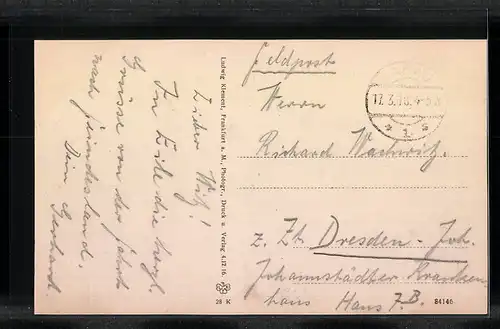 Lieber Wiz!
In Eile die herzl.
Grüsse von der Fahrt
nach Feindesland.
Dein Gerhard.
Ludwig Klement, Frankfurt a. M., Photogr., Druck u. Verlag 4.12.16.
28 K
Feldpost
17.3.18.
* 1. *
Herrn
Richard Wachwitz,
z. Zt. Dresden-Joh.
Johannstädter Kranken
haus Haus 7.B.
84146